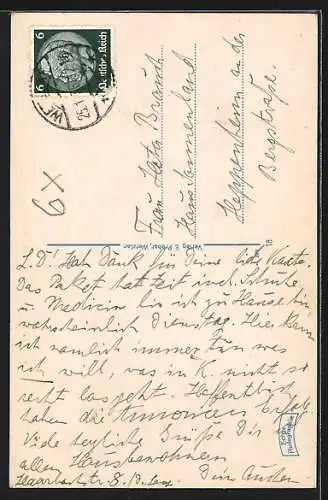 6 Deutsches Reich 6
Frau Käta Brauch
Haus Sonnenland
Heppenheim an der
Bergstraße.
6 x
Verlag E. Pröser, Wetzlar
18
L. D! Hab Dank für Deine liebe Karte.
Das Paket hat Zeit incl. Schuhe
u Medizin bin ich zu Hause bin
wahrscheinlich Dienstag. Hier kann
ich nämlich immer tun was
ich will, was in K. nicht so
recht los geht. Hoffentlich
haben die Annoncen Erfolg.
Viele herzliche Grüße Dir u
allen Hausbewohnern
Dein
Echte
Photographie